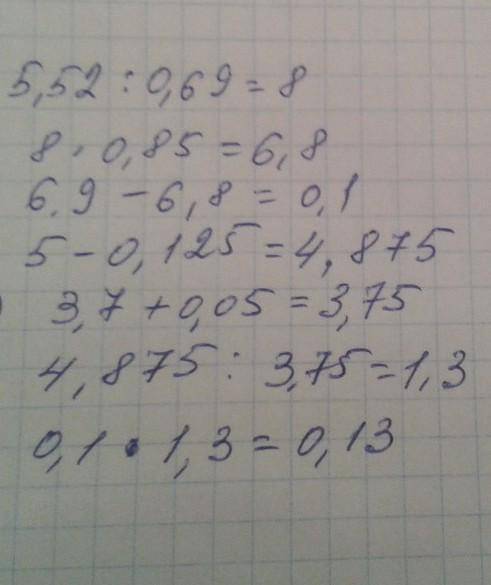 5,52 : 0,69 = 8
8 · 0,85 = 6,8
6.9 - 6,8 = 0,1
5 - 0,125 = 4,875
) 3,7 + 0,05 = 3,75
4,875 : 3,75 = 1,3
0,1 · 1,3 = 0,13